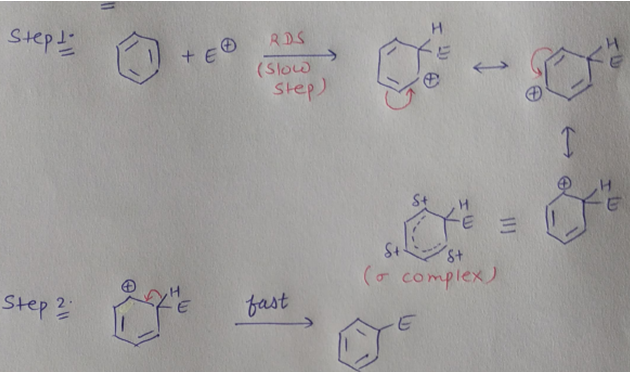 Step 1:
+ E⊕
RDS
(Slow
Step)
H
E
⊕
↔
H
E
⊕
↕
δ+
H
E
δ+
δ+
(σ complex)
≡
⊕
H
E
Step 2:
⊕
H
E
fast
E